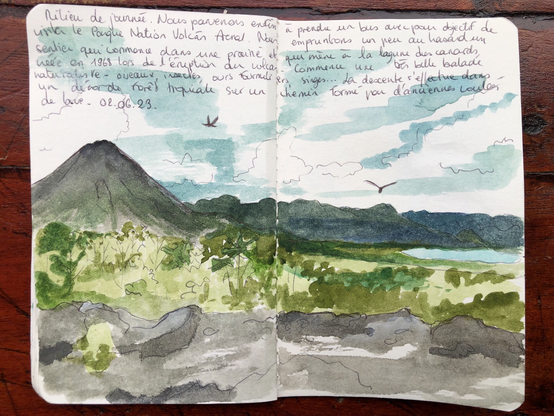 Milieu de journée. Nous parvenons enfin à prendre un bus avec pour objectif de
visiter le Parque Nation Volcán Arenal. Nous empruntons un peu au hasard un
sentier qui commence dans une prairie et qui mène à la lagune des canards
créée en 1968 lors de l'éruption du volcan. Commence une très belle balade
naturaliste - oiseaux, insectes, ours fourmilier, singes... La descente s'effectue dans
un décor de forêt tropicale sur un chemin formé par d'anciennes coulées
de lave. 02.06.23.